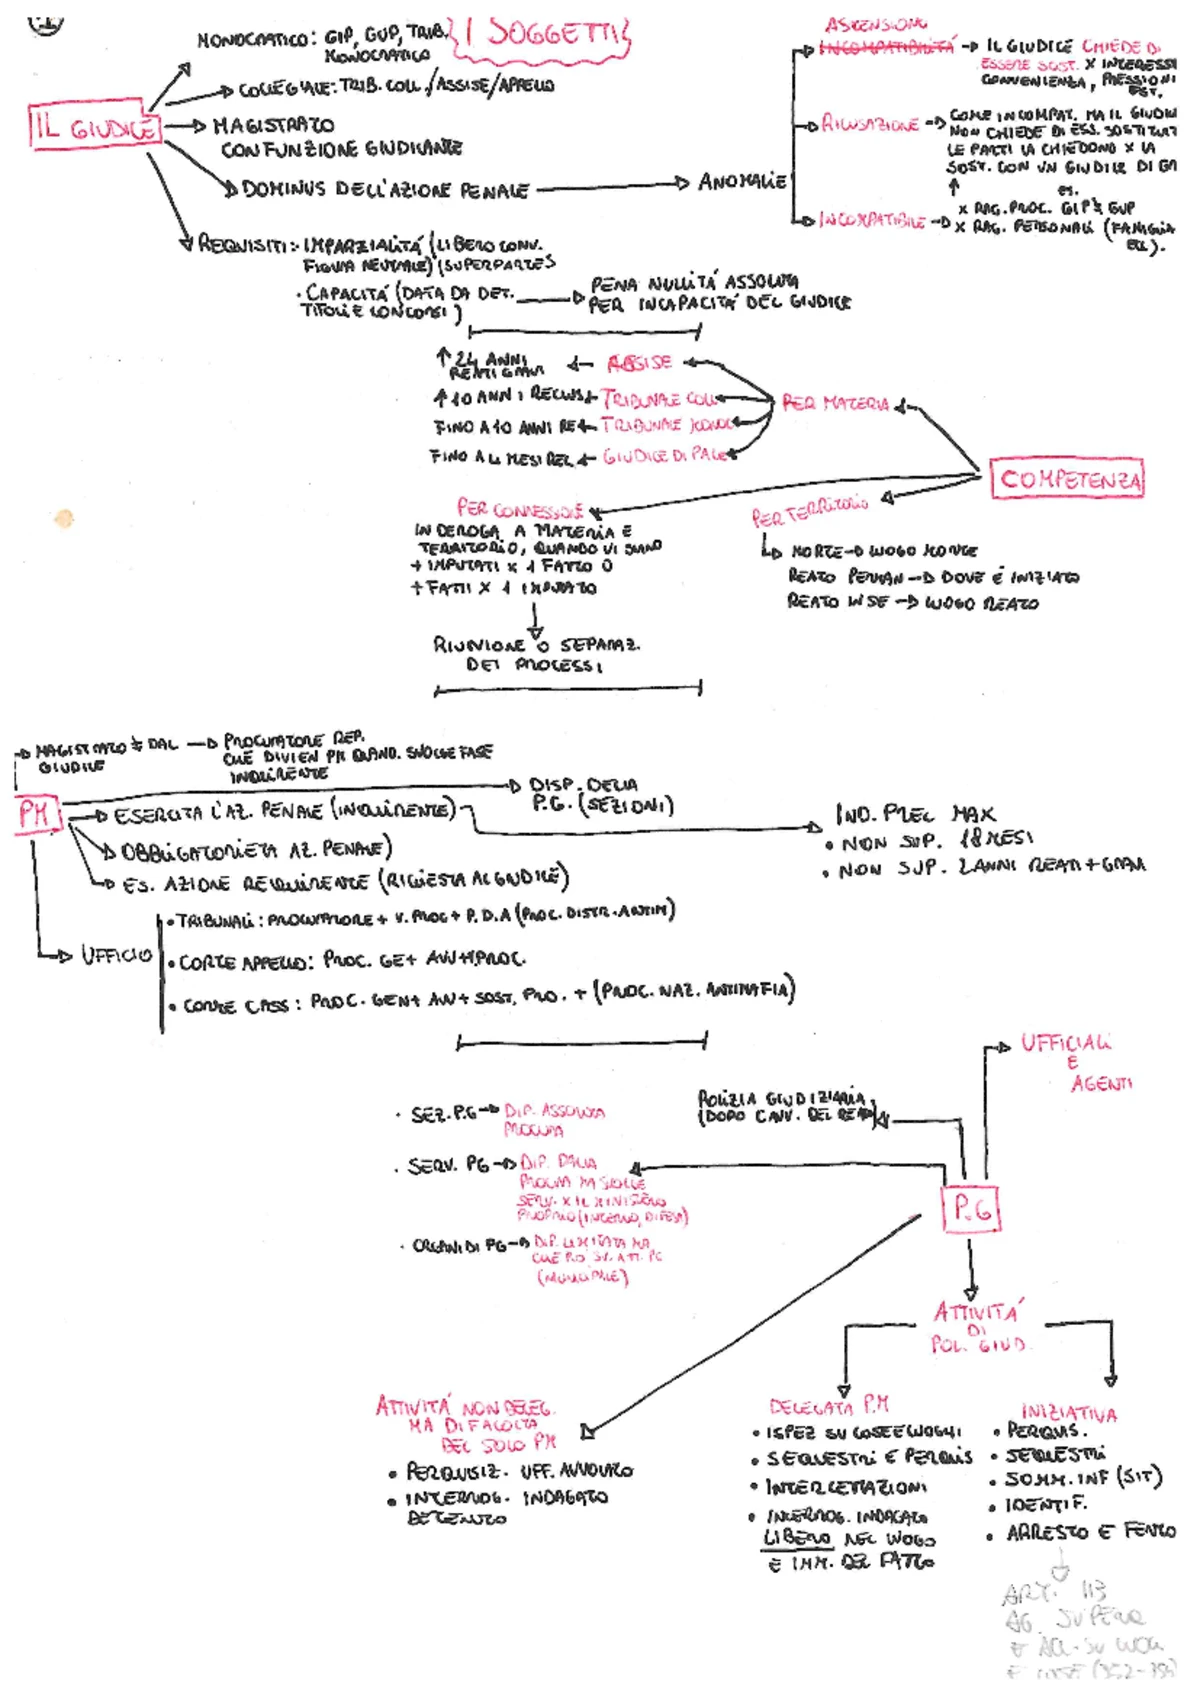 I SOGGETTI
MONOCRATICO: GIP, GUP, TRIB.
MONOCRATICO
COLLEGIALE: TRIB. COLL./ASSISE/APPELLO
IL GIUDICE
MAGISTRATO
CON FUNZIONE GIUDICANTE
DOMINUS DELL'AZIONE PENALE
ANOMALIE
ASTENSIONE
INCOMPATIBILITÁ
IL GIUDICE CHIEDE DI
ESSERE SOST. X INTERESSI
CONVENIENZA, PRESSIONI
EST.
RICUSAZIONE
COME INCOMPAT. MA IL GIUDI
NON CHIEDE DI ESS. SOSTITUIT
LE PARTI LA CHIEDONO X LA
SOST. CON UN GIUDICE DI
es.
INCOMPATIBILE
X RAG. PROC. GIP ≠ GUP
X RAG. PERSONALI (FAMIGLIA
ECC).
REQUISITI: IMPARZIALITÁ (LIBERO CONV.
FIGURA NEUTRALE) (SUPERPARTES
• CAPACITÁ (DATA DA DET.
TITOLI E CONCORSI)
PENA NULLITÁ ASSOLUTA
PER INCAPACITÁ DEL GIUDICE
COMPETENZA
PER MATERIA
ASSISE
↑ 24 ANNI
REATI GRAVI
TRIBUNALE COLL
↑ 10 ANNI RECLUS
TRIBUNALE MONOC
FINO A 10 ANNI RE
GIUDICE DI PACE
FINO A 4 MESI REC
PER TERRITORIO
MORTE → LUOGO MORTE
REATO PERMAN → DOVE É INIZIATO
REATO → LUOGO REATO
PER CONNESSIONE
IN DEROGA A MATERIA E
TERRITORIO, QUANDO VI SIANO
+ IMPUTATI X 1 FATTO O
+ FATTI X 1 IMPUTATO
RIUNIONE O SEPARAZ.
DEI PROCESSI
PM
MAGISTRATO ≠ DAL
GIUDICE
PROCURATORE REP.
CHE DIVIEN PM QUAND. SVOLGE FASE
INQUIRENTE
DISP. DELLA
P.G. (SEZIONI)
ESERCITA L'AZ. PENALE (INQUIRENTE)
IND. PREL MAX
• NON SUP. 18 MESI
• NON SUP. 2 ANNI REATI + GRAVI
OBBLIGATORIETA AZ. PENALE)
ES. AZIONE REQUIRENTE (RICIESTA AL GIUDICE)
UFFICIO
• TRIBUNALI: PROCURATORE + V. PROC + P.D.A (PROC. DISTR. ANTIM)
• CORTE APPELLO: PROC. GE + AVV+
• CORTE CASS: PROC. GEN + AVV + SOST. PRO. + (PROC. NAZ. ANTIMAFIA)
P.G
UFFICIALI
E
AGENTI
POLIZIA GIUDIZIARIA
(DOPO DEL REATO)
• SEZ. P.G → DIP. ASSOLUTA
PROCURA
• SERV. PG → DIP. DALLA
PROCURA MA SVOLGE
SERV. X IL MINISTERO
PROPRIO (INTERNO, DIFESA)
• ORGANI DI PG → DIP. LIMITATA MA
CHE PUO SV. ATT. PG
(MUNICIPALE)
ATTIVITÁ
DI
POL. GIUD.
ATTIVITÁ NON DELEG.
MA DI FACOLTA
DEL SOLO PM
• PERQUISIZ. UFF. AVVOCATO
• INTERROG. INDAGATO
DETENUTO
DELEGATA P.M
• ISPEZ SU COSE E LUOGHI
• SEQUESTRI E PERQUIS
• INTERCETTAZIONI
• INTERROG. INDAGATO
LIBERO NEL LUOGO
E IMM. DEL FATTO
INIZIATIVA
• PERQUIS.
• SEQUESTRI
• SOMM. INF (SIT)
• IDENTIF.
• ARRESTO E FERMO
ART. 113
AG.
E ACC. SU LUOG
E COSE (352-354)